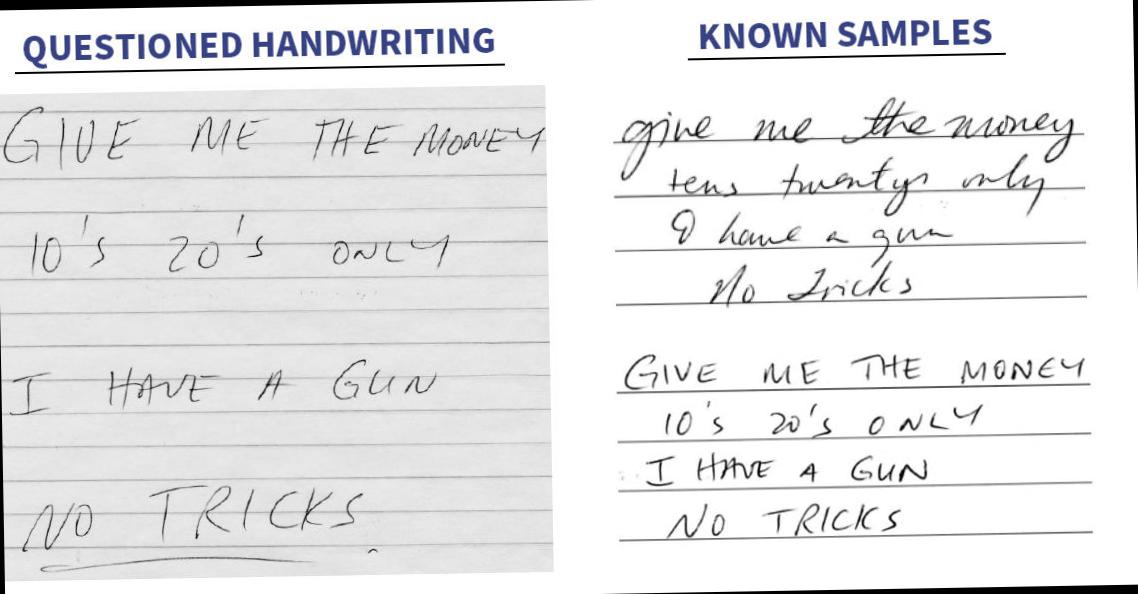 QUESTIONED HANDWRITING
GIVE ME THE MONEY
10's 20's ONLY
I HAVE A GUN
NO TRICKS
KNOWN SAMPLES
give me the money
tens twentys only
I have a gun
No Tricks
GIVE ME THE MONEY
10's 20's ONLY
I HAVE A GUN
NO TRICKS